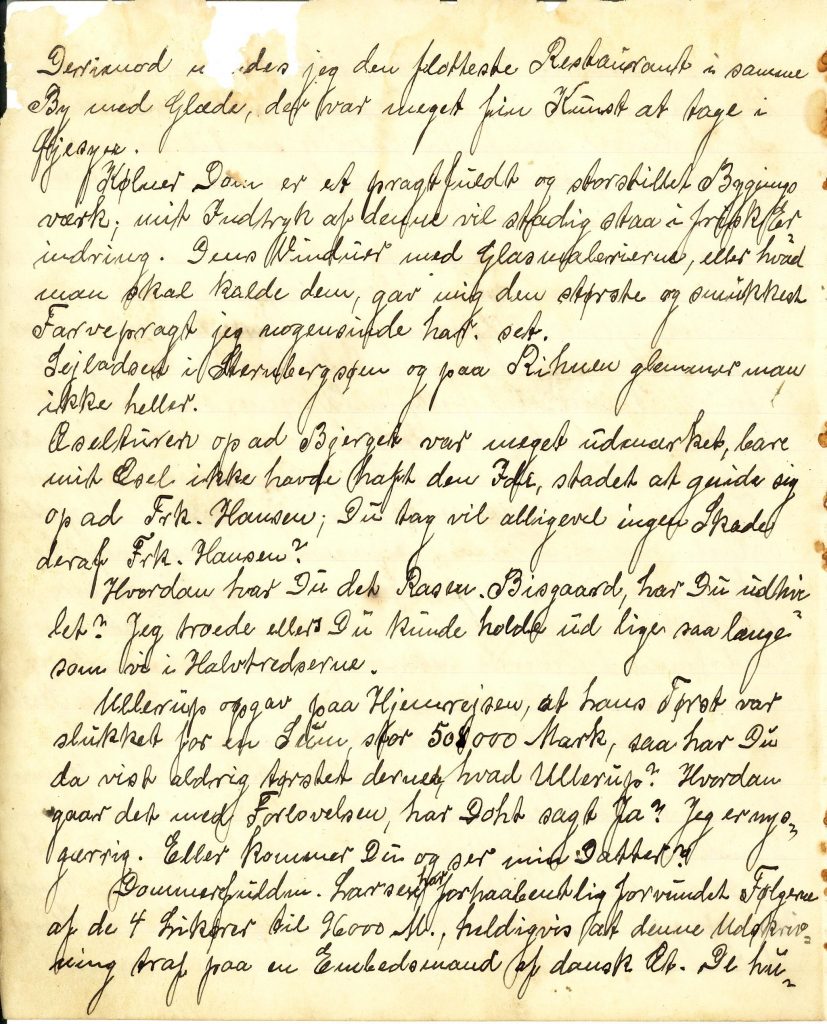 Derimod mindes jeg den flotteste Restaurant i samme
By med Glæde, der var meget fin Kunst at tage i
Øjesyn.
Kølner Dom er et pragtfuldt og storstillet Bygnings
værk; mit Indtryk af denne vil stadig staa i frisk Er
indring. Dens Vinduer med Glasmalerierne, eller hvad
man skal kalde dem, gav mig den største og smukkest
Farvepragt jeg nogensinde har. set.
Sejladsen i Sternbergsøen og paa Rihnen glemmer man
ikke heller.
Æselturen op ad Bjerget var meget udmærket, bare
mit Æsel ikke havde haft den Ide, stadet at gnide sig
op ad Frk. Hansen; Du tog vil alligevel ingen Skade
deraf Frk. Hansen?
Hvordan har Du det Rasm. Bisgaard, har Du udhvi
let? Jeg troede ellers Du kunde holde ud lige saa længe
som vi i Halvtredserne.
Ullerup opgav paa Hjemrejsen, at hans Tørst var
slukket for en Sum, stor 508000 Mark, saa har Du
da vist aldrig tørstet derned, hvad Ullerup? Hvordan
gaar det med Forlovelsen, har Doht sagt Ja? Jeg er nys=
gærrig. Eller kommer Du og ser min Datter?
Dommerfuldm. Larsen har forhaabentlig forvundet Følgerne
af de 4 Likører til 96000 M., heldigvis at denne Udskriv=
ning traf paa en Embedsmand af dansk Æt. De hu=